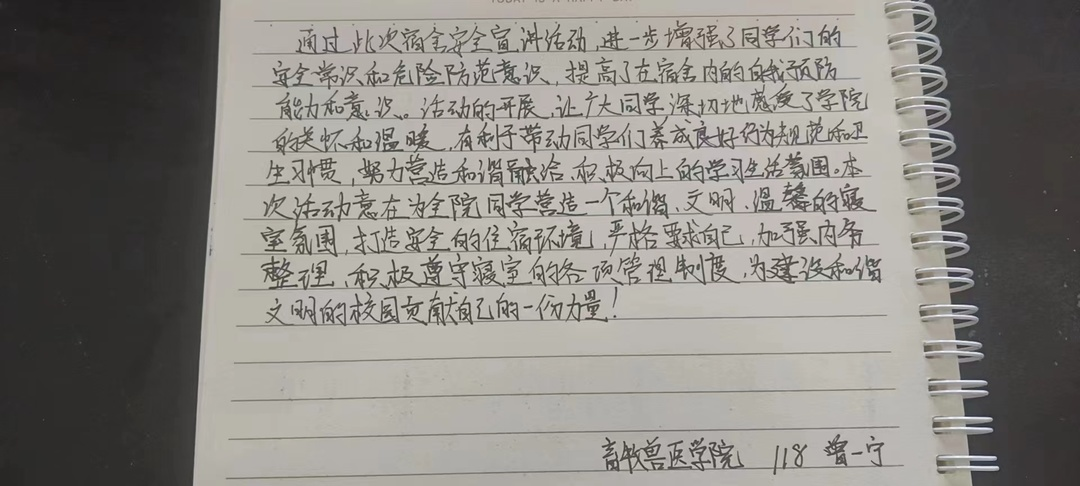 通过此次宿舍安全宣讲活动,进一步增强了同学们的
安全常识和危险防范意识,提高了在宿舍内的自我预防
能力和意识。活动的开展,让广大同学深切地感受了学院
的关怀和温暖,有利于带动同学们养成良好行为规范和卫
生习惯,努力营造和谐融洽、积极向上的学习生活氛围。本
次活动意在为全院同学营造一个和谐、文明、温馨的寝
室氛围,打造安全的住宿环境,严格要求自己,加强内务
整理,积极遵守寝室的各项管理制度,为建设和谐
文明的校园贡献自己的一份力量!
畜牧兽医学院 118 曾一宁